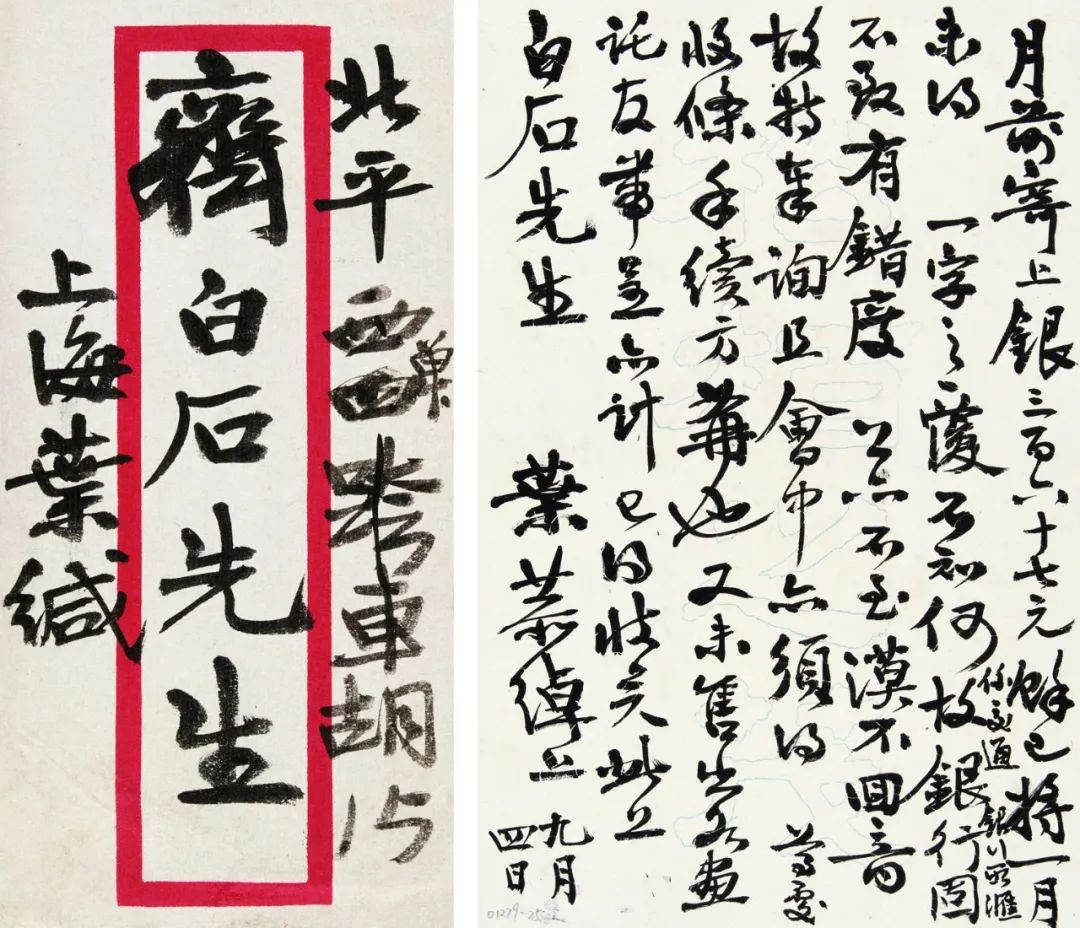 北平西單
跨車胡15
齊白石先生
上海葉緘
月前寄上銀三百六十七元餘已將一月
係交通銀行所滙
未得 一字之覆不知何故銀行固
不致有錯度 公亦不至漠不回音
故特奉詢且會中亦須得 尊處
收條手續方 也又未售出各畫
託友帶呈亦計已得收 此上
白石先生
葉恭綽上 九月四日
01279-25